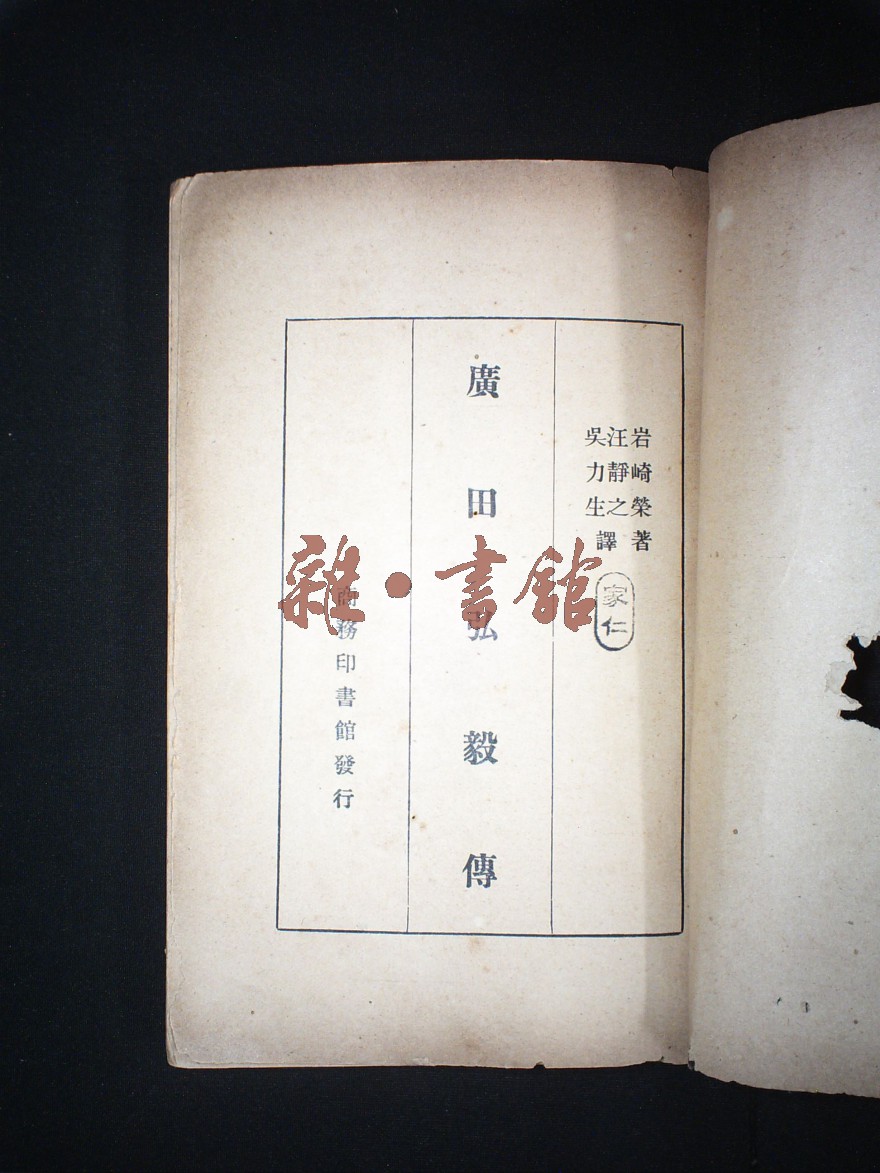 岩崎榮著
汪靜之
吳力生譯
家仁
廣田弘毅傳
商務印書館發行
雜·書館